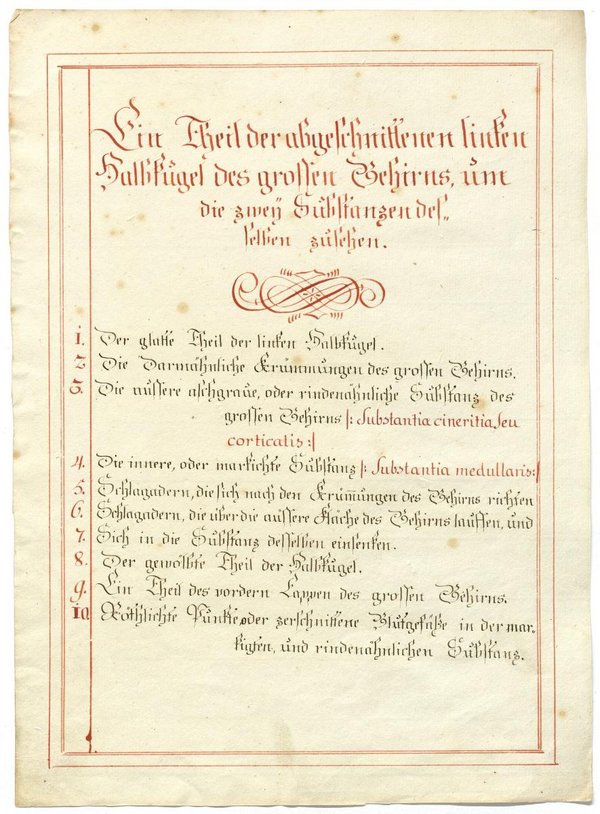 Ein Theil der abgeschnittenen linken
Halbkugel des grossen Gehirns, um
die zweÿ Substanzen des„
selben zusehen.
1. Der glatte Theil der linken Halbkugel.
2 Die Darmähnliche Krümmungen des grossen Gehirns.
3. Die äussere aschgraue, oder rindenähnliche Substanz des
grossen Gehirns |: Substantia cineritia, seu
corticalis :|
4. Die innere, oder markichte Substanz |: Substantia medullaris :|
5. Schlagadern, die sich nach den Krum̄ungen des Gehirns richten
6. Schlagadern, die über die äussere Fläche des Gehirns lauffen, und
7. Sich in die Substanz desselben einsenken.
8. Der gewölbte Theil der Halbkugel.
9. Ein Theil des vordern Lappen des grossen Gehirns.
10 Röthlichte Punkte, oder zerschnittene Blutgefäße in der mar„
kigten, und rindenähnlichen Substanz.